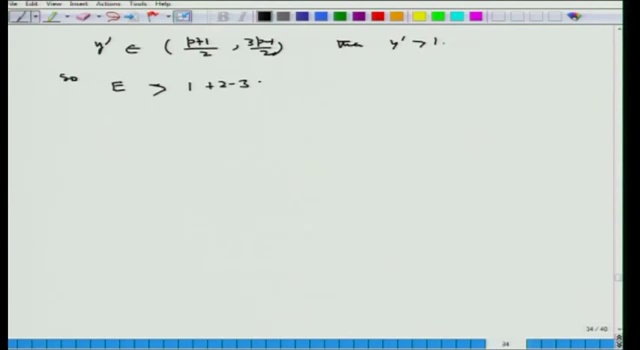 File Edit View Insert Actions Tools Help
y' ∈ ( p+1/2 , 3p-1/2 ) then y' > 1.
so E > 1 + 2 - 3 .
34 / 40
34